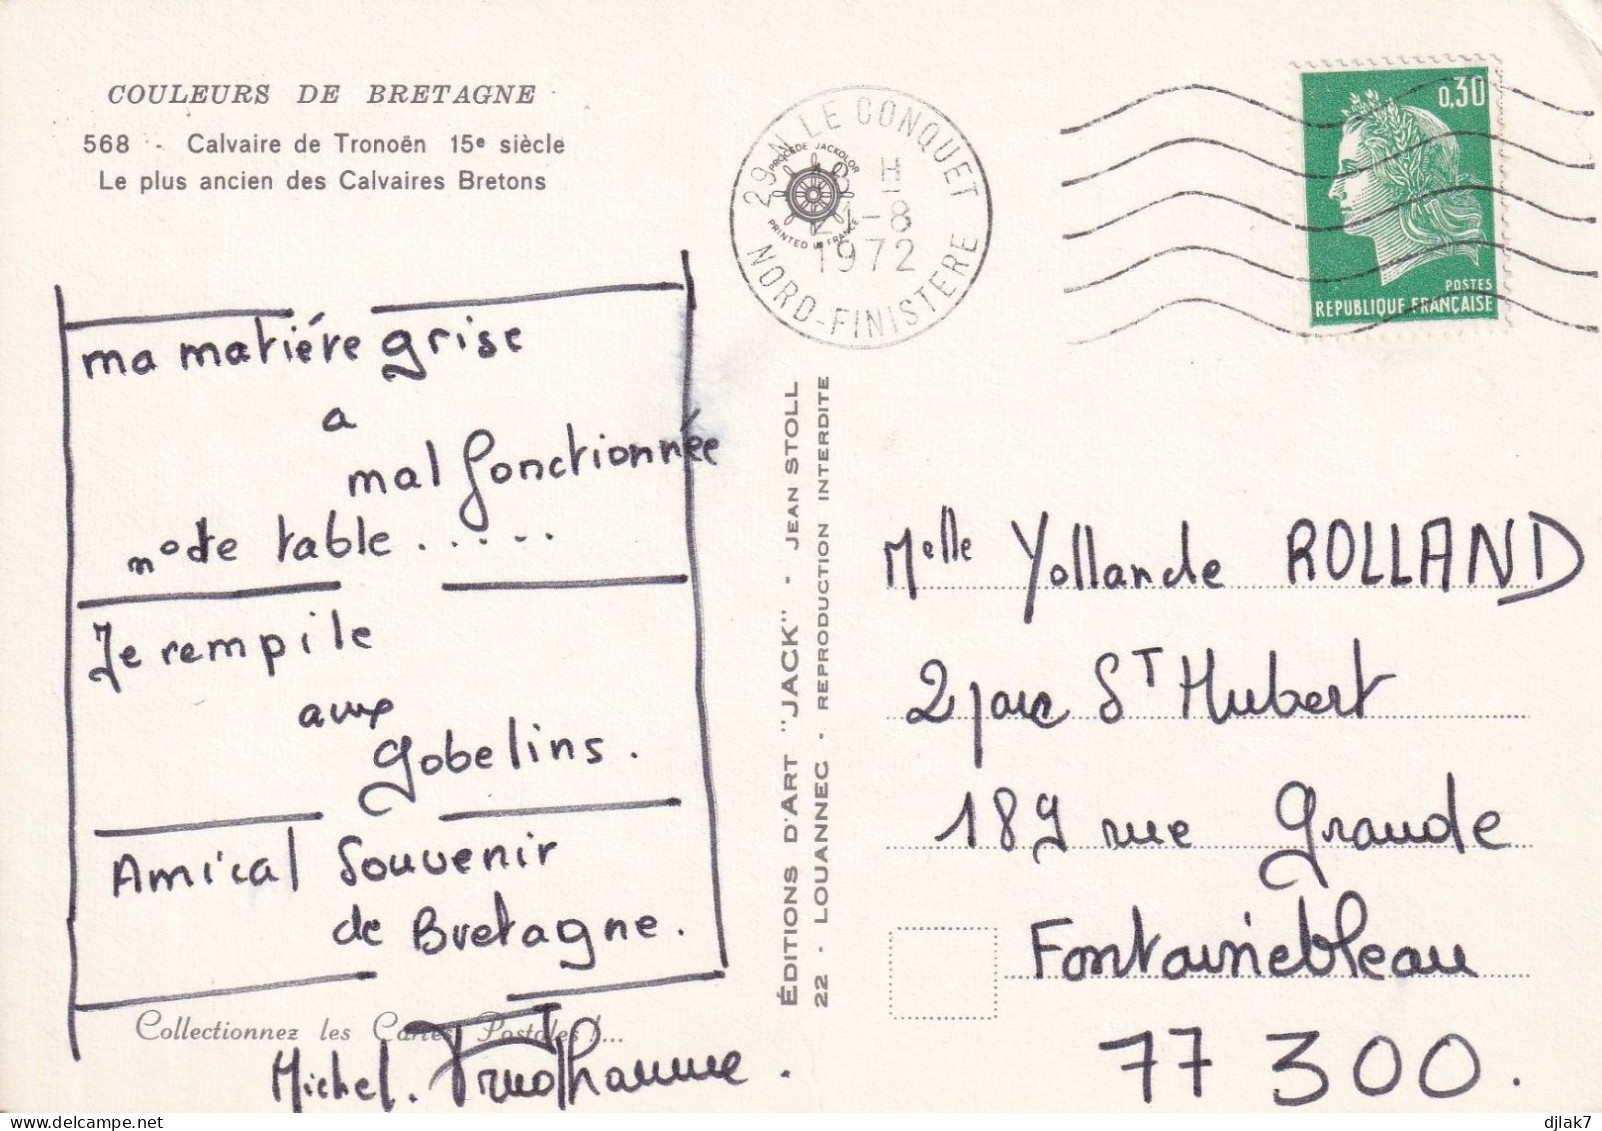 COULEURS DE BRETAGNE
568 - Calvaire de Tronoën 15e siècle
Le plus ancien des Calvaires Bretons
29 N LE CONQUET
H
21-8
1972
NORD-FINISTERE
PROCEDE JACKOLOR
PRINTED IN FRANCE
0,30
POSTES
REPUBLIQUE FRANÇAISE
ma matiére grise
a
mal fonctionnée
note table.....
Je rempile
aux
gobelins.
Amical Souvenir
de Bretagne.
Collectionnez les Cartes Postales !...
Michel.
ÉDITIONS D'ART "JACK" - JEAN STOLL
22 - LOUANNEC - REPRODUCTION INTERDITE
Melle Yollande ROLLAND
2 parc ST Hubert
189 rue Grande
Fontainebleau
77 300.
djlak7